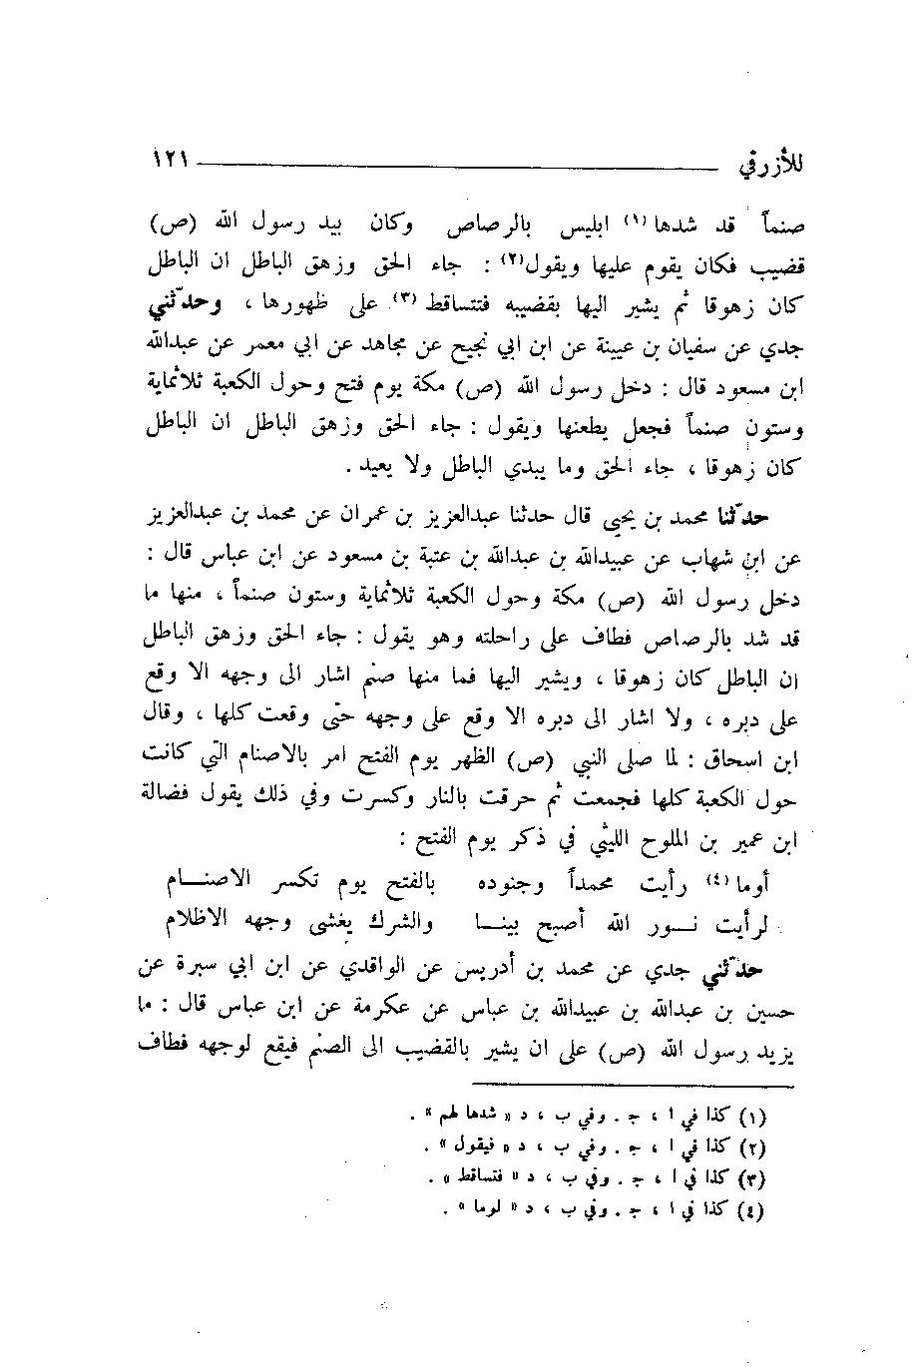 للأزرقي ١٢١
صنماً قد شدها (١) ابليس بالرصاص وكان بيد رسول الله (ص)
قضيب فكان يقوم عليها ويقول(٢) : جاء الحق وزهق الباطل ان الباطل
كان زهوقا ثم يشير اليها بقضيبه فتتساقط (٣) على ظهورها ، وحدّثني
جدي عن سفيان بن عيينة عن ابن ابي نجيح عن مجاهد عن ابي معمر عن عبدالله
ابن مسعود قال : دخل رسول الله (ص) مكة يوم فتح وحول الكعبة ثلاثماية
وستون صنماً فجعل يطعنها ويقول : جاء الحق وزهق الباطل ان الباطل
كان زهوقا ، جاء الحق وما يبدي الباطل ولا يعيد .
حدّثنا محمد بن يحيى قال حدثنا عبدالعزيز بن عمران عن محمد بن عبدالعزيز
عن ابن شهاب عن عبيدالله بن عبدالله بن عتبة بن مسعود عن ابن عباس قال :
دخل رسول الله (ص) مكة وحول الكعبة ثلاثماية وستون صنماً ، منها ما
قد شد بالرصاص فطاف على راحلته وهو يقول : جاء الحق وزهق الباطل
ان الباطل كان زهوقا ، ويشير اليها فما منها صنم اشار الى وجهه الا وقع
على دبره ، ولا اشار الى دبره الا وقع على وجهه حتى وقعت كلها ، وقال
ابن اسحاق : لما صلى النبي (ص) الظهر يوم الفتح امر بالاصنام التي كانت
حول الكعبة كلها فجمعت ثم حرقت بالنار وكسرت وفي ذلك يقول فضالة
ابن عمير بن الملوح الليثي في ذكر يوم الفتح :
أوما (٤) رأيت محمداً وجنوده بالفتح يوم تكسر الاصنـــام
لرأيت نـــور الله أصبح بينـــا والشرك يغشى وجهه الاظلام
حدّثني جدي عن محمد بن أدريس عن الواقدي عن ابن ابي سبرة عن
حسين بن عبدالله بن عبيدالله بن عباس عن عكرمة عن ابن عباس قال : ما
يزيد رسول الله (ص) على ان يشير بالقضيب الى الصنم فيقع لوجهه فطاف
(١) كذا في ا ، ج . وفي ب ، د « شدها لهم » .
(٢) كذا في ا ، ج . وفي ب ، د « فيقول » .
(٣) كذا في ا ، ج . وفي ب ، د « فتساقط » .
(٤) كذا في ا ، ج . وفي ب ، د « لوما » .